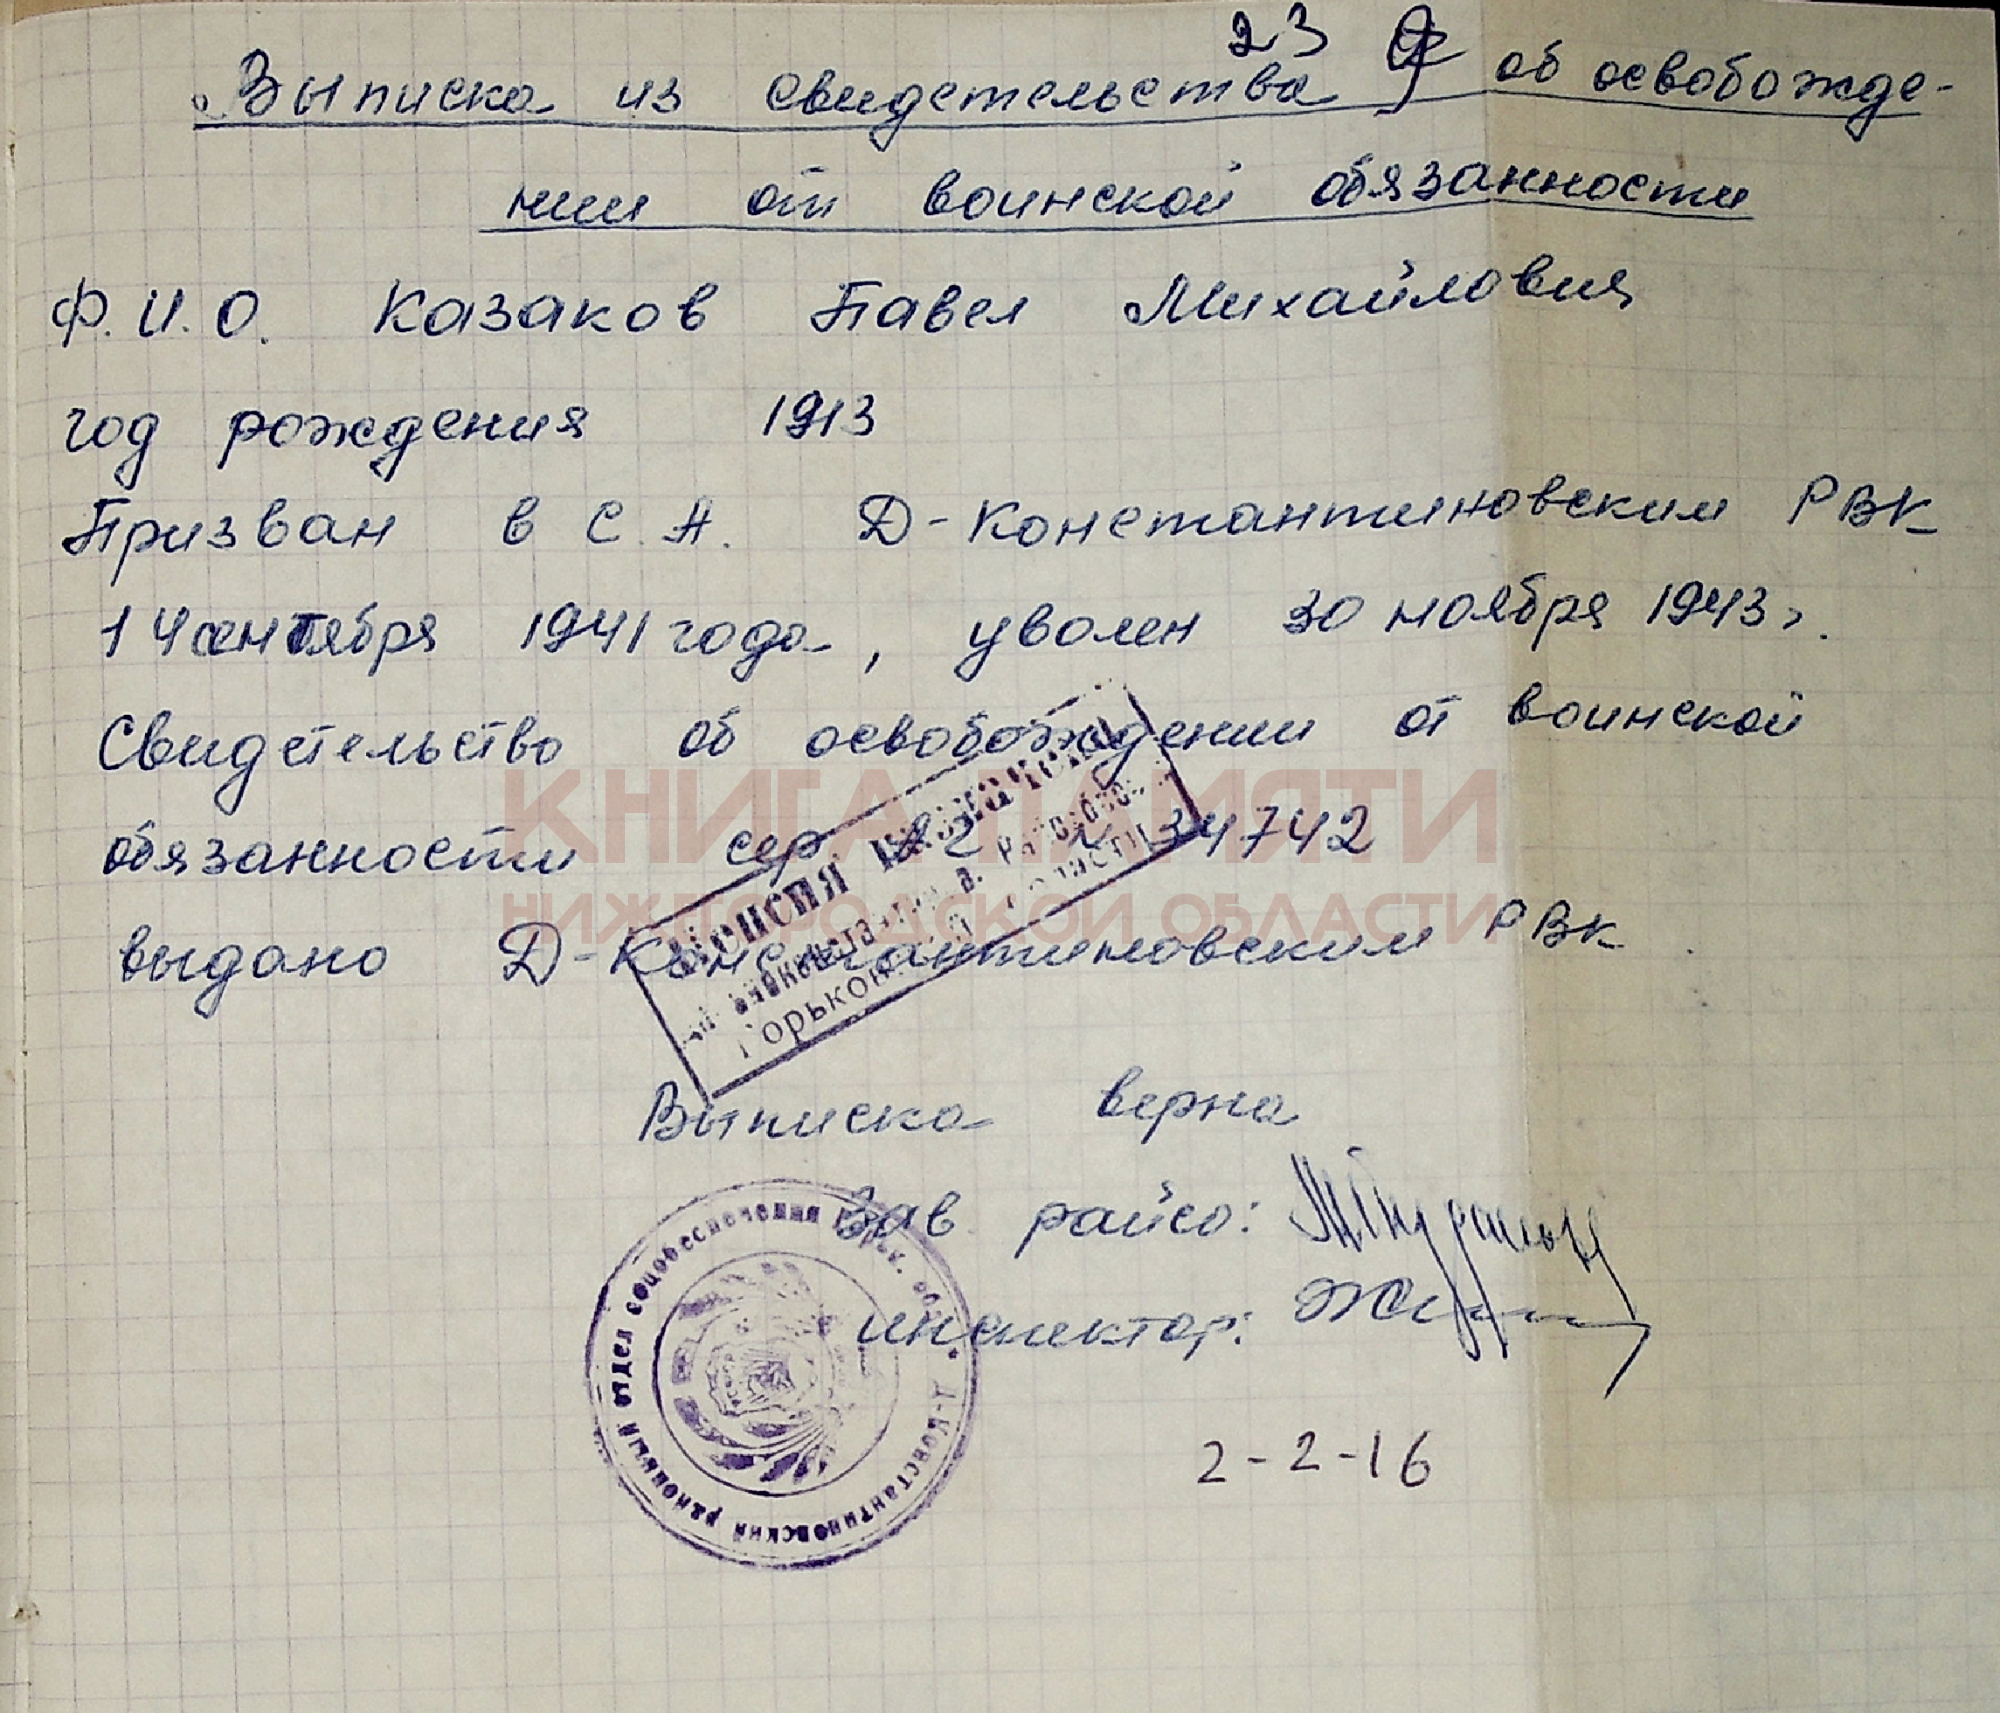 23
Выписка из свидетельства об освобожде-
нии от воинской обязанности
Ф.И.О. Казаков Павел Михайлович
год рождения 1913
Призван в С.А. Д-Константиновским РВК
14 сентября 1941 года, уволен 30 ноября 1943 г.
Свидетельство об освобождении от воинской
КНИГА ПАМЯТИ
обязанности сер 34742
НИЖЕГОРОДСКОЙ ОБЛАСТИ
выдано Д-Константиновским РВК
Выписка верна
Зав райсо:
инспектор:
Д-Константиновский районный отдел соцобеспечения Горьк. обл.
2-2-16